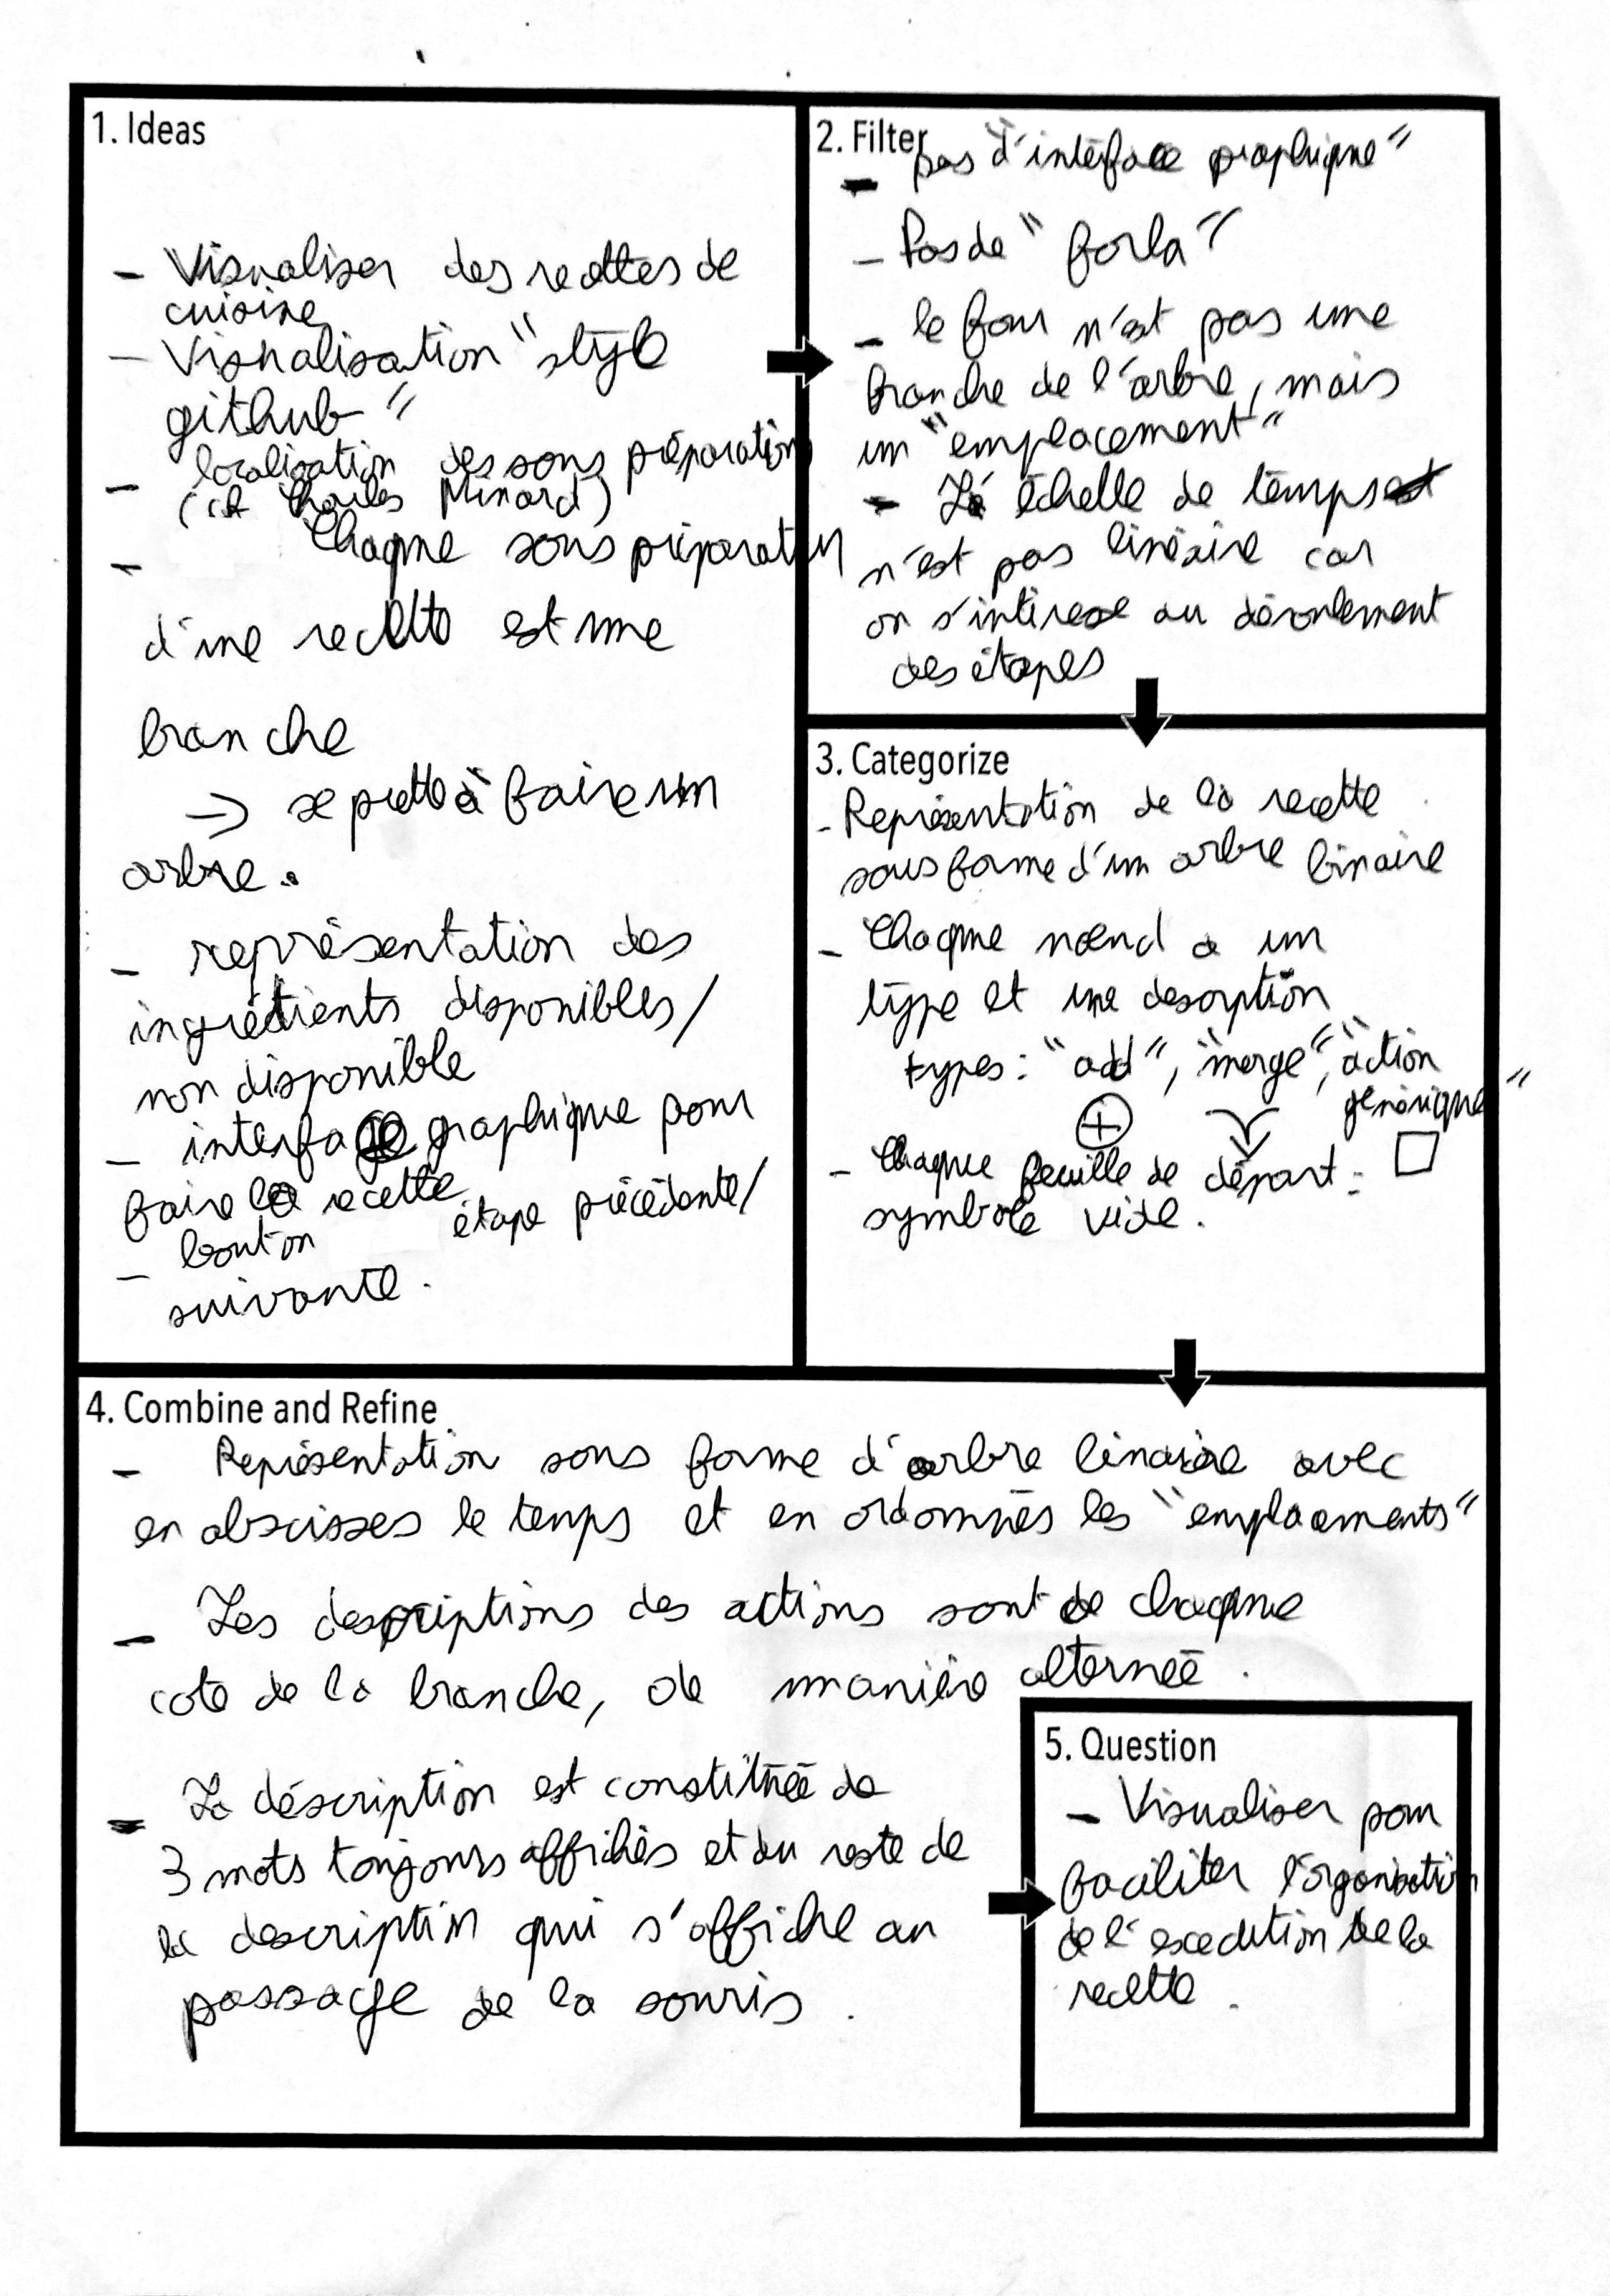 1. Ideas
- Visualiser des recettes de
cuisine
- Visualisation "style
github"
- localisation des sous préparations
(cf Charles Minard)
- Chaque sous préparation
d'une recette est une
branche
→ se prette à faire un
arbre.
- représentation des
ingrédients disponibles/
non disponible
- interface graphique pour
faire la recette
- bouton étape précédente/
suivante.
2. Filter
- pas "d'interface graphique"
- Pas de "
- le four n'est pas une
branche de l'arbre, mais
un "emplacement"
- échelle de temps
n'est pas linéaire car
on s'intéresse au déroulement
des étapes
3. Categorize
- Représentation de la recette
sous forme d'un arbre binaire
- Chaque nœud a un
type et une description
types: "add", "merge", "action
générique"
- Chaque feuille de départ :
symbole vide.
4. Combine and Refine
- Représentation sous forme d'arbre binaire avec
en abscisses le temps et en ordonnées les "emplacements"
- Les descriptions des actions sont de chaque
coté de la branche, de manière alternée.
- La déscription est constituée de
3 mots toujours affichés et du reste de
la description qui s'affiche au
passage de la souris.
5. Question
- Visualiser pour
faciliter l'organisation
de l'execution de la
recette.